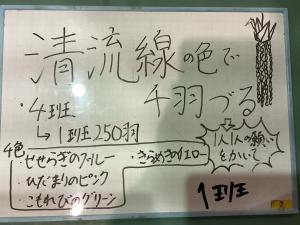 清流線の色で
千羽づる
・4班
↳1班250羽
4色
・せせらぎのブルー
・ひだまりのピンク
・こもれびのグリーン
・きらめきのイエロー
1人1人の願いをかいて
1班